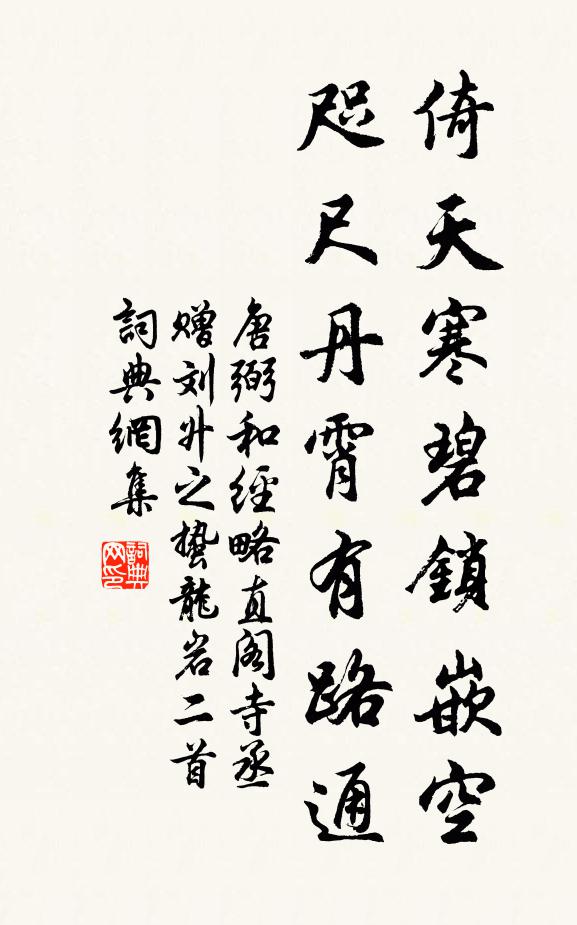 倚天寒碧鎖嵌空
咫尺丹霄有路通
唐弼和經略直閣寺丞
贈刘升之蟄龍岩二首
詞典網集
詞典网印